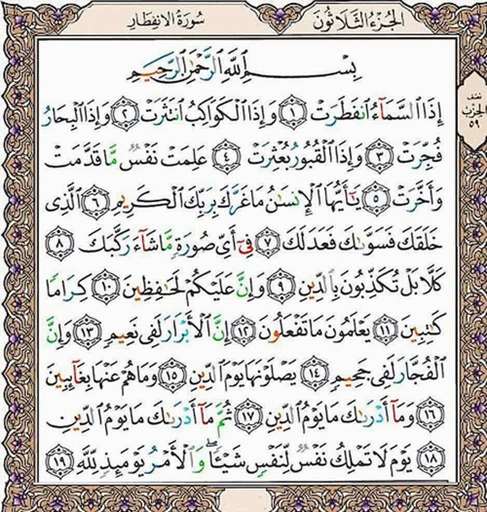 سُورَةُ الانفِطَارِ
الجُزْءُ الثَّلَاثُونَ
نصف الحزب ٥٩
بِسْمِ ٱللَّهِ ٱلرَّحْمَٰنِ ٱلرَّحِيمِ
إِذَا ٱلسَّمَآءُ ٱنفَطَرَتْ ١ وَإِذَا ٱلْكَوَاكِبُ ٱنتَثَرَتْ ٢ وَإِذَا ٱلْبِحَارُ
فُجِّرَتْ ٣ وَإِذَا ٱلْقُبُورُ بُعْثِرَتْ ٤ عَلِمَتْ نَفْسٌ مَّا قَدَّمَتْ
وَأَخَّرَتْ ٥ يَٰٓأَيُّهَا ٱلْإِنسَٰنُ مَا غَرَّكَ بِرَبِّكَ ٱلْكَرِيمِ ٦ ٱلَّذِى
خَلَقَكَ فَسَوَّىٰكَ فَعَدَلَكَ ٧ فِىٓ أَىِّ صُورَةٍ مَّا شَآءَ رَكَّبَكَ ٨
كَلَّا بَلْ تُكَذِّبُونَ بِٱلدِّينِ ٩ وَإِنَّ عَلَيْكُمْ لَحَٰفِظِينَ ١٠ كِرَامًا
كَٰتِبِينَ ١١ يَعْلَمُونَ مَا تَفْعَلُونَ ١٢ إِنَّ ٱلْأَبْرَارَ لَفِى نَعِيمٍ ١٣ وَإِنَّ
ٱلْفُجَّارَ لَفِى جَحِيمٍ ١٤ يَصْلَوْنَهَا يَوْمَ ٱلدِّينِ ١٥ وَمَا هُمْ عَنْهَا بِغَآئِبِينَ
١٦ وَمَآ أَدْرَىٰكَ مَا يَوْمُ ٱلدِّينِ ١٧ ثُمَّ مَآ أَدْرَىٰكَ مَا يَوْمُ ٱلدِّينِ
١٨ يَوْمَ لَا تَمْلِكُ نَفْسٌ لِّنَفْسٍ شَيْـًٔا ۖ وَٱلْأَمْرُ يَوْمَئِذٍ لِّلَّهِ ١٩